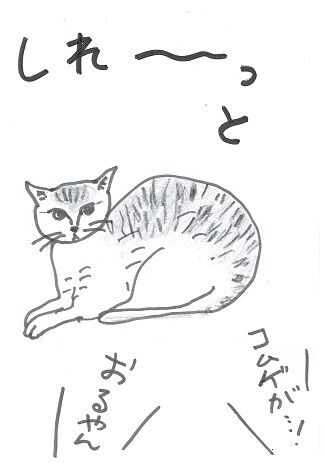 しれ〜っ
と
コムゲが…!
おるやん